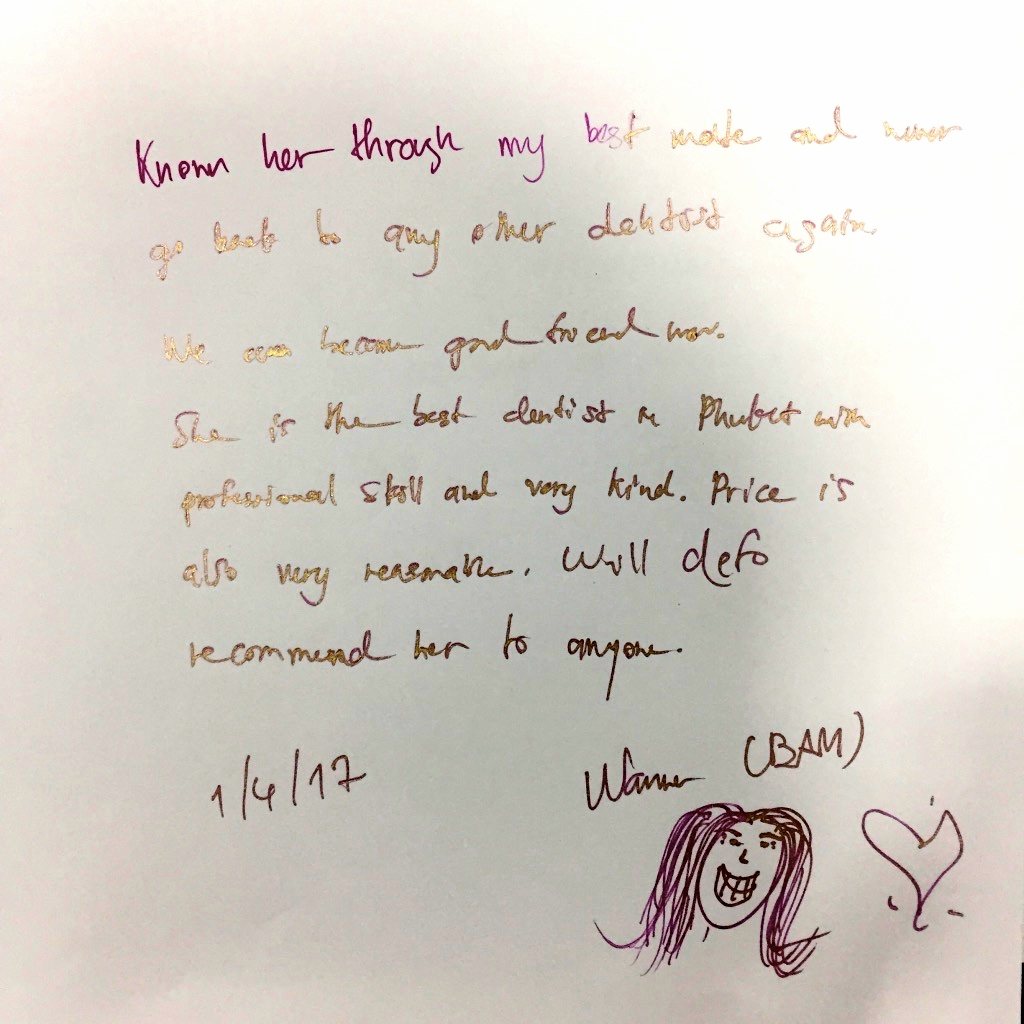 Known her through my best mate and never
go back to any other dentist again
We even become good friend now.
She is the best dentist in Phuket with
professional skill and very kind. Price is
also very reasonable. Will defo
recommend her to anyone.
1/4/17
(BAM)